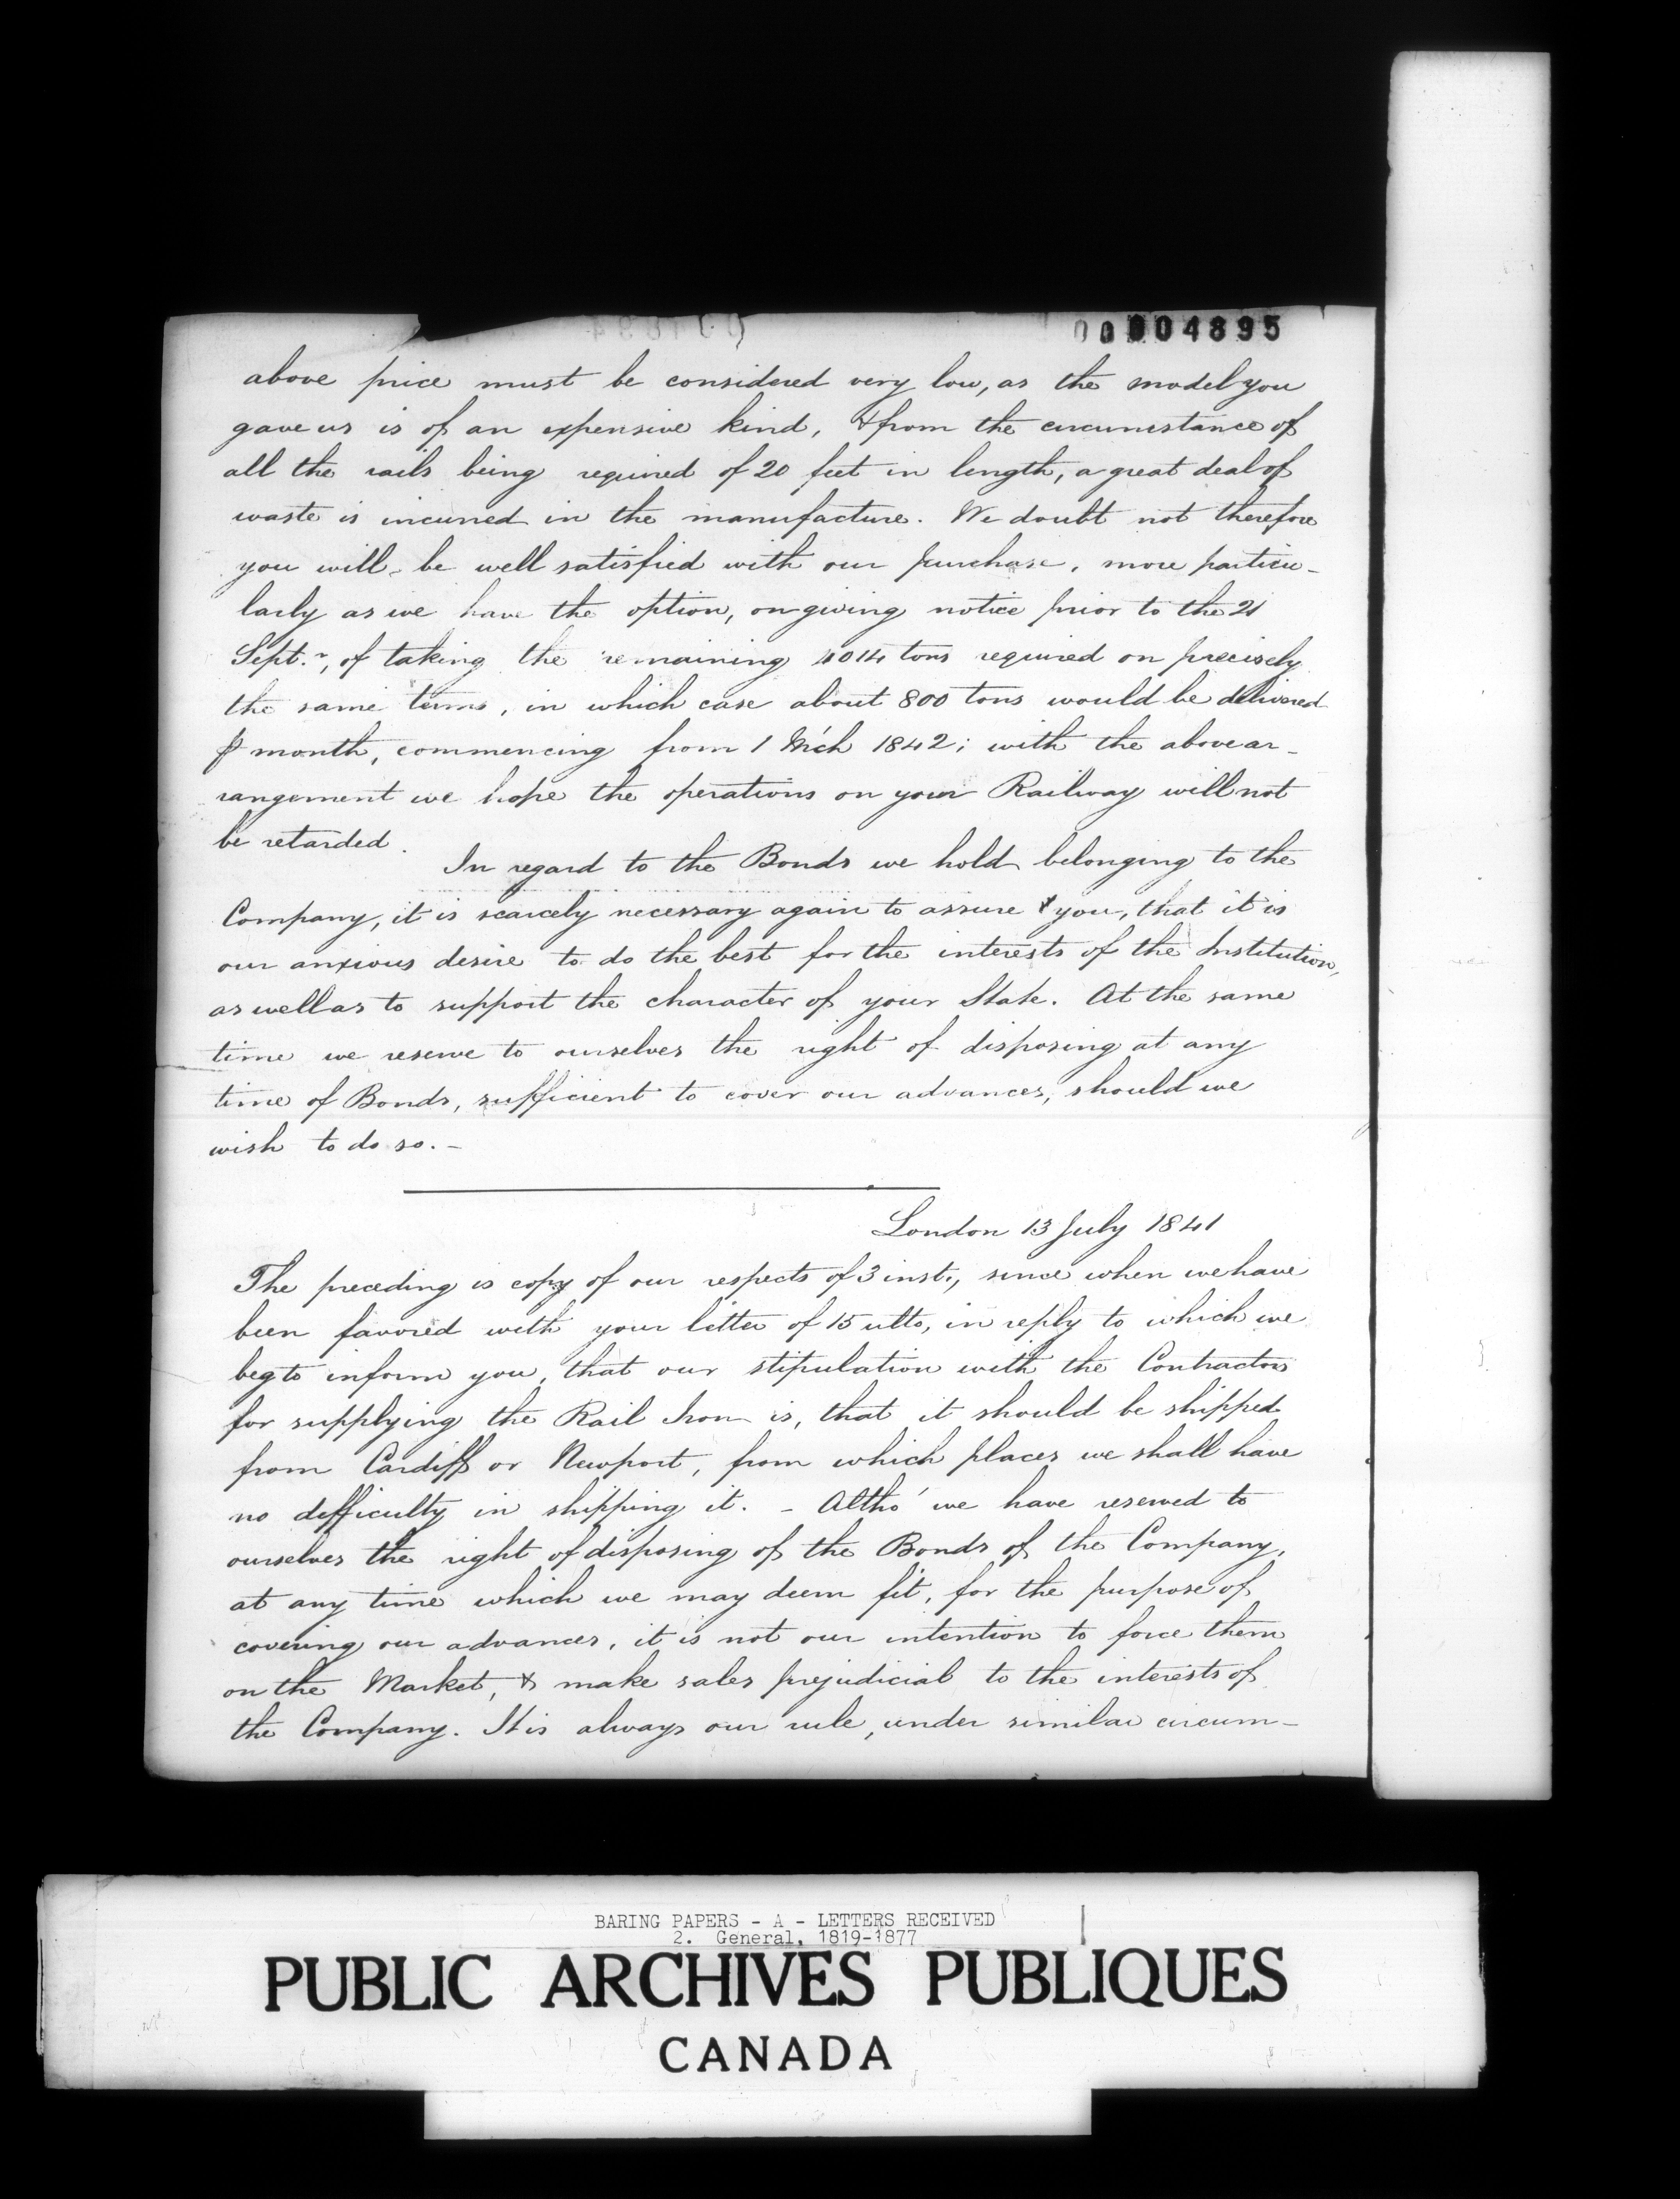 00004895
above price must be considered very low, as the model you
gave us is of an expensive kind, & from the circumstance of
all the rails being required of 20 feet in length, a great deal of
waste is incurred in the manufacture. We doubt not therefore
you will be well satisfied with our purchase, more particu-
larly as we have the option, on giving notice prior to the 21
Sept.r, of taking the remaining 4014 tons required on precisely
the same terms, in which case about 800 tons would be delivered
⅌ month, commencing from 1 Mch 1842; with the above ar-
rangement we hope the operations on your Railway will not
be retarded.
In regard to the Bonds we hold belonging to the
Company, it is scarcely necessary again to assure you, that it is
our anxious desire to do the best for the interests of the Institution,
as well as to support the character of your State. At the same
time we reserve to ourselves the right of disposing at any
time of Bonds, sufficient to cover our advances, should we
wish to do so. -
London 13 July 1841
The preceding is copy of our respects of 3 inst., since when we have
been favored with your letter of 15 ulto, in reply to which we
beg to inform you, that our stipulation with the Contractors
for supplying the Rail Iron is, that it should be shipped
from Cardiff or Newport, from which places we shall have
no difficulty in shipping it. - Altho' we have reserved to
ourselves the right of disposing of the Bonds of the Company,
at any time which we may deem fit, for the purpose of
covering our advances, it is not our intention to force them
on the Market, & make sales prejudicial to the interests of
the Company. It is always our rule, under similar circum-
BARING PAPERS - A - LETTERS RECEIVED
2. General, 1819-1877
PUBLIC ARCHIVES PUBLIQUES
CANADA